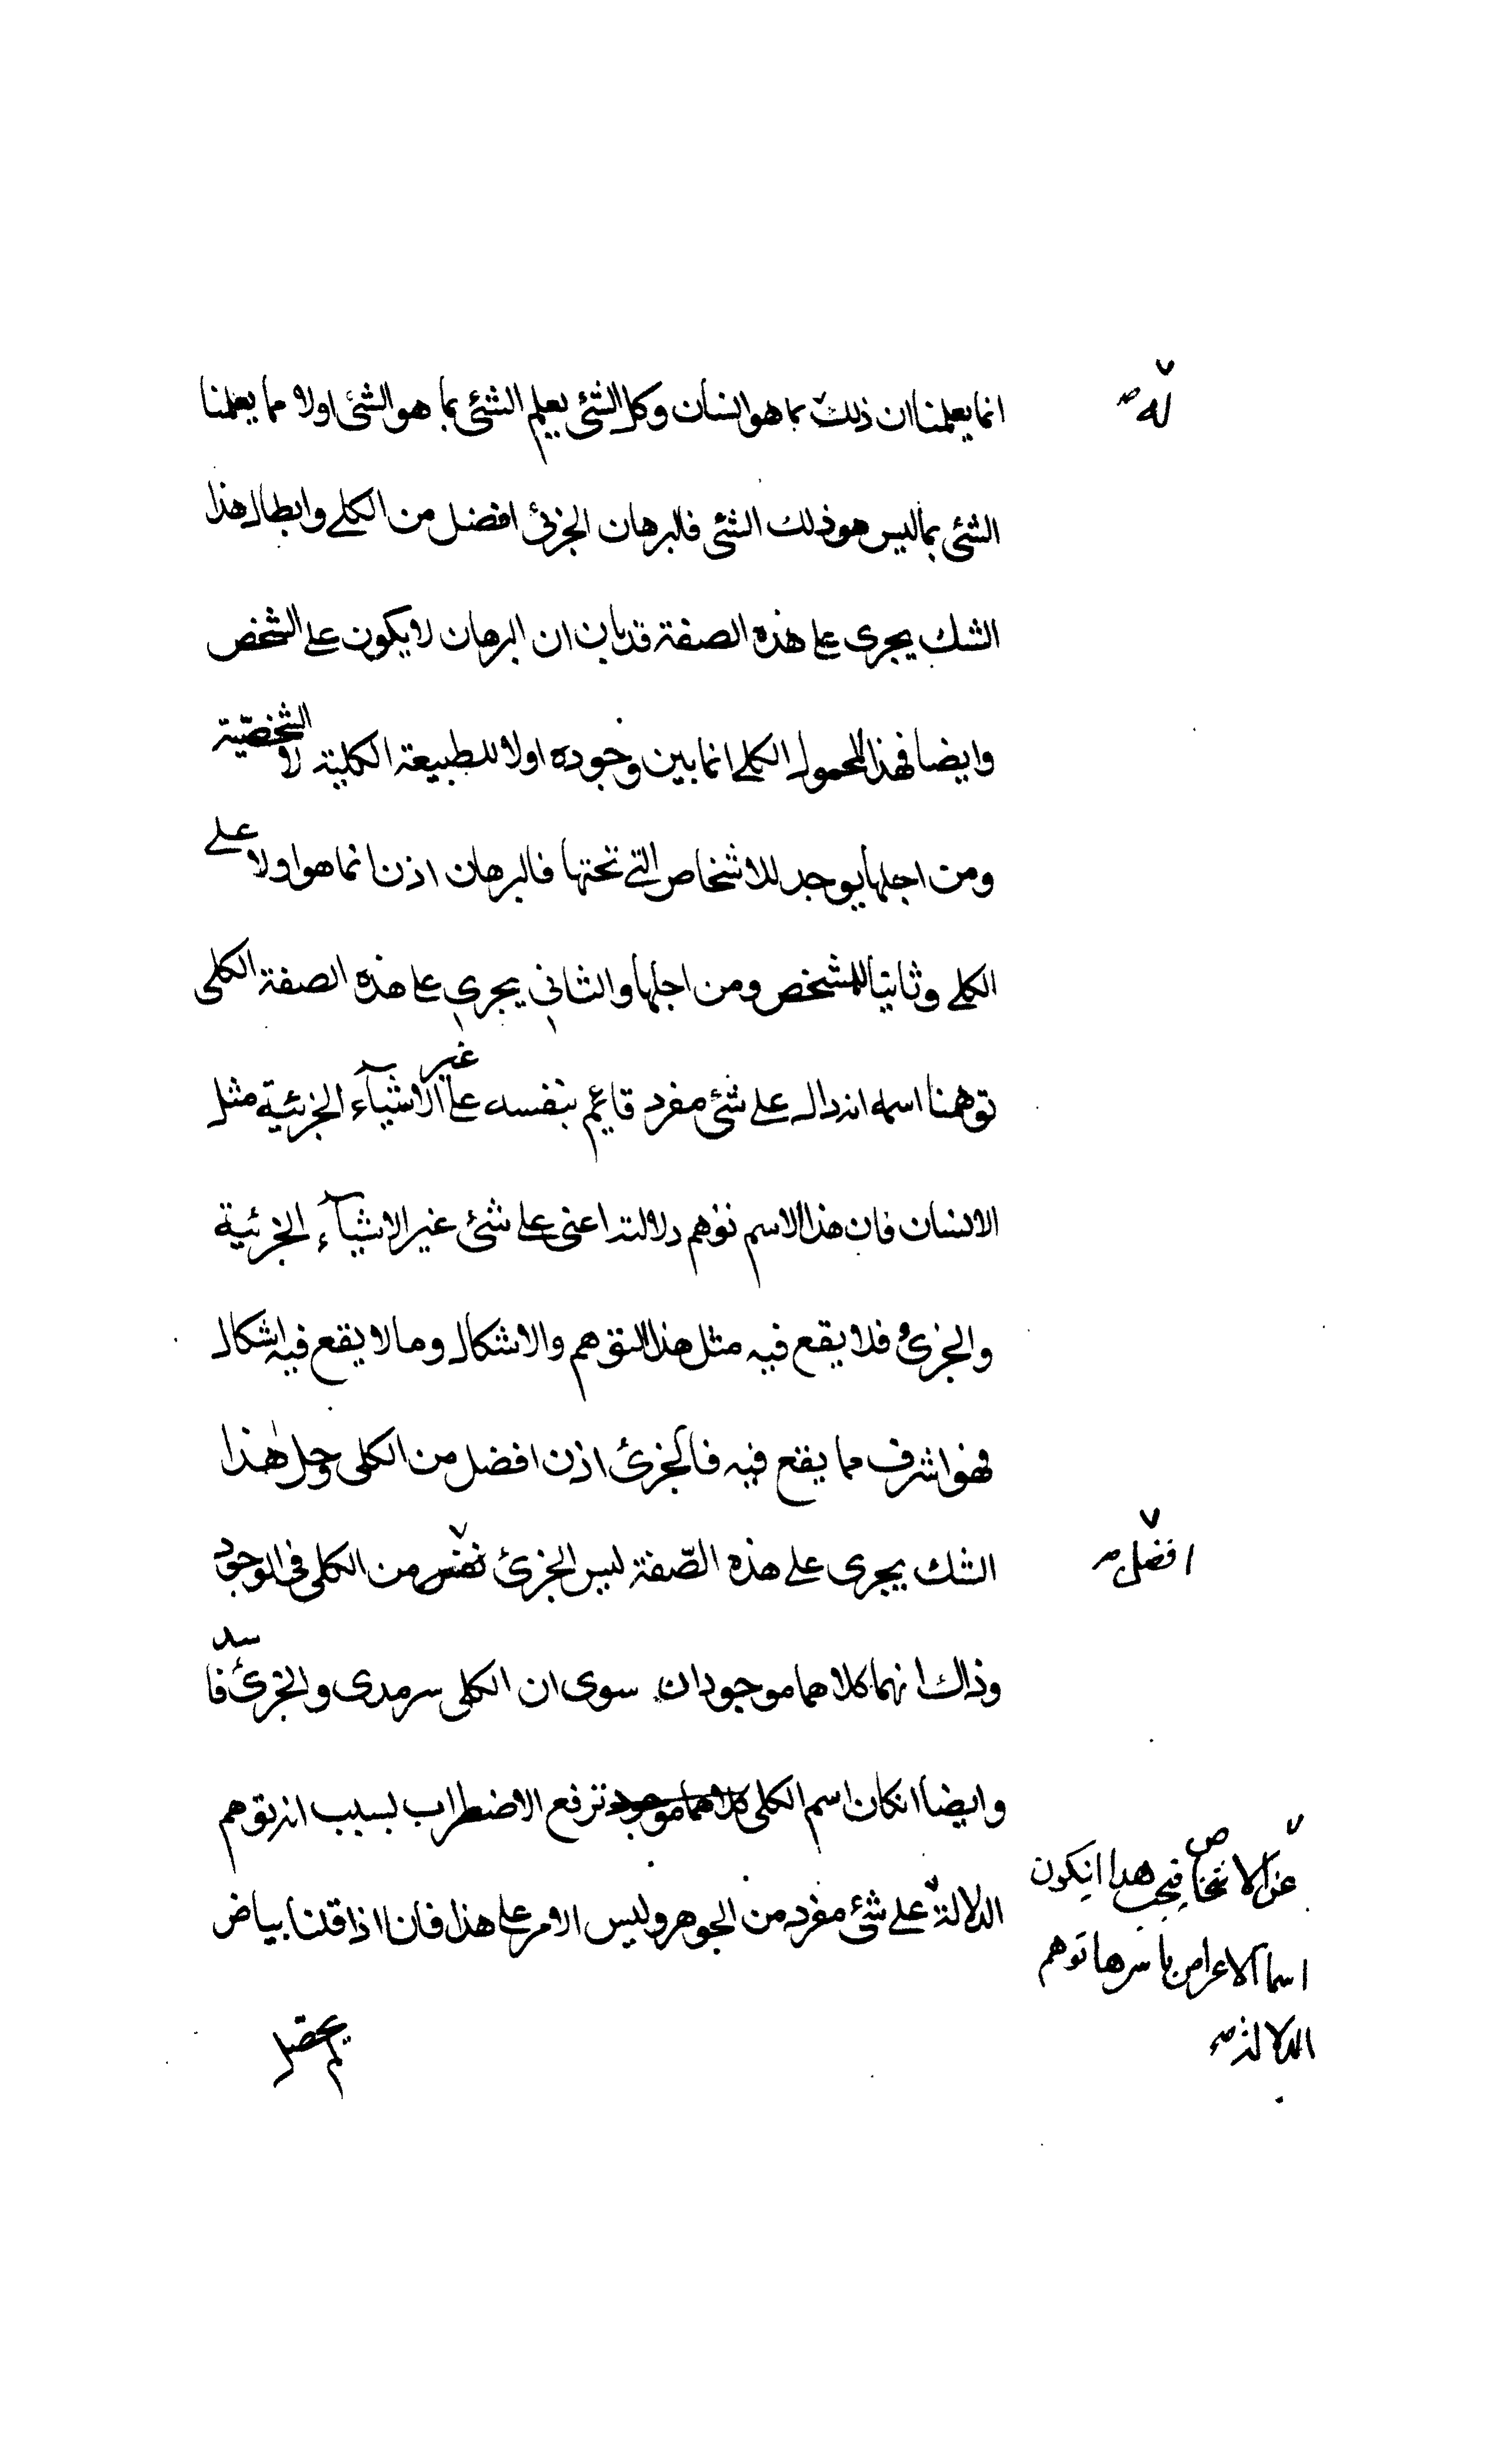 انما يعلمنا ان ذلك بما هو انسان وكل الشئ يعلم الشئ بما هو الشئ اولا مما يعلمنا
له صح
الشئ بما ليس هو ذلك الشئ فالبرهان الجزئ افضل من الكلى وابطال هذا
الشك يجرى على هذه الصفة قد بان ان البرهان لا يكون على الشخص
وايضا فهذا المحمول الكلى انما بين وجوده اولا للطبيعة الكلية لا الشخصيّة
ومن اجلها يوجد للاشخاص التى تحتها فالبرهان اذن انما هو اولا على
الكلى وثانيا للشخص ومن اجلها والثانى يجرى على هذه الصفة الكلى
توهمنا اسمه انه دال على شئ مفرد قائم بنفسه على غير الاشيآء الجزئية مثل
الانسان فان هذا الاسم توهم دلالته اعنى على شئ غير الاشيآء الجزئية
والجزئ فلا يقع فيه مثل هذا التوهم والاشكال وما لا يقع فيه اشكال
فهو اشرف مما يقع فيه فالجزئ اذن افضل من الكلى وحل هذا
الشك يجرى على هذه الصّفة ليس الجزئ من الكلى فى الوجود
افضل صح
وذاك انهما كلاهما موجودان سوى ان الكلى سرمدى والجزئ فاسد
وايضا انكان اسم الكلى كلاهما موجود ترفع الاضطراب بسبب انه توهم
الدلالة على شئ مفرد من الجوهر وليس الامر على هذا فان اذا قلنا بياض
عن الاشخاص فيجب هذا انيكون
اسمآ الاعراض باسرها توهم
الدلالة صح